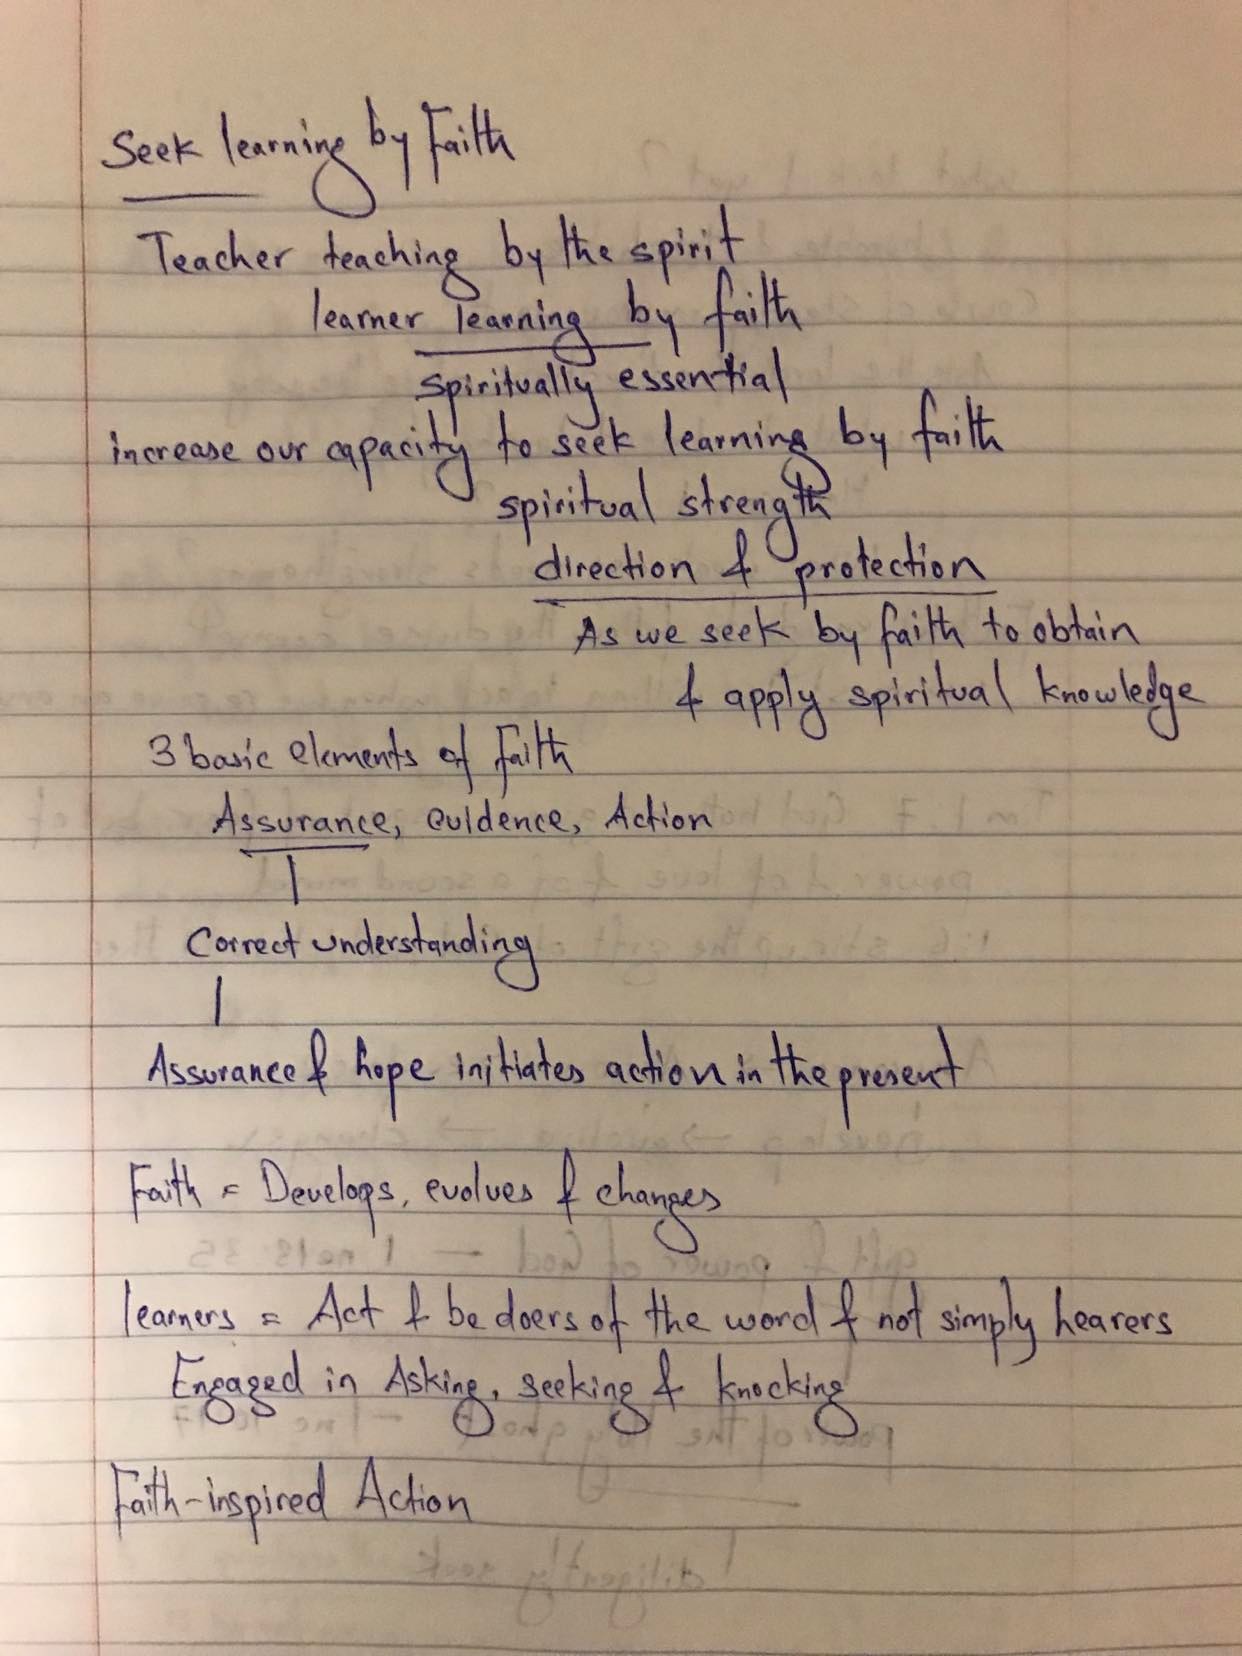 Seek learning by Faith
Teacher teaching by the spirit
learner learning by faith
spiritually essential
increase our capacity to seek learning by faith
spiritual strength
direction & protection
As we seek by faith to obtain
& apply spiritual knowledge
3 basic elements of faith
Assurance, evidence, Action
Correct understanding
Assurance & hope initiates action in the present
Faith = Develops, evolves & changes
learners = Act & be doers of the word & not simply hearers
Engaged in Asking, seeking & knocking
Faith-inspired Action